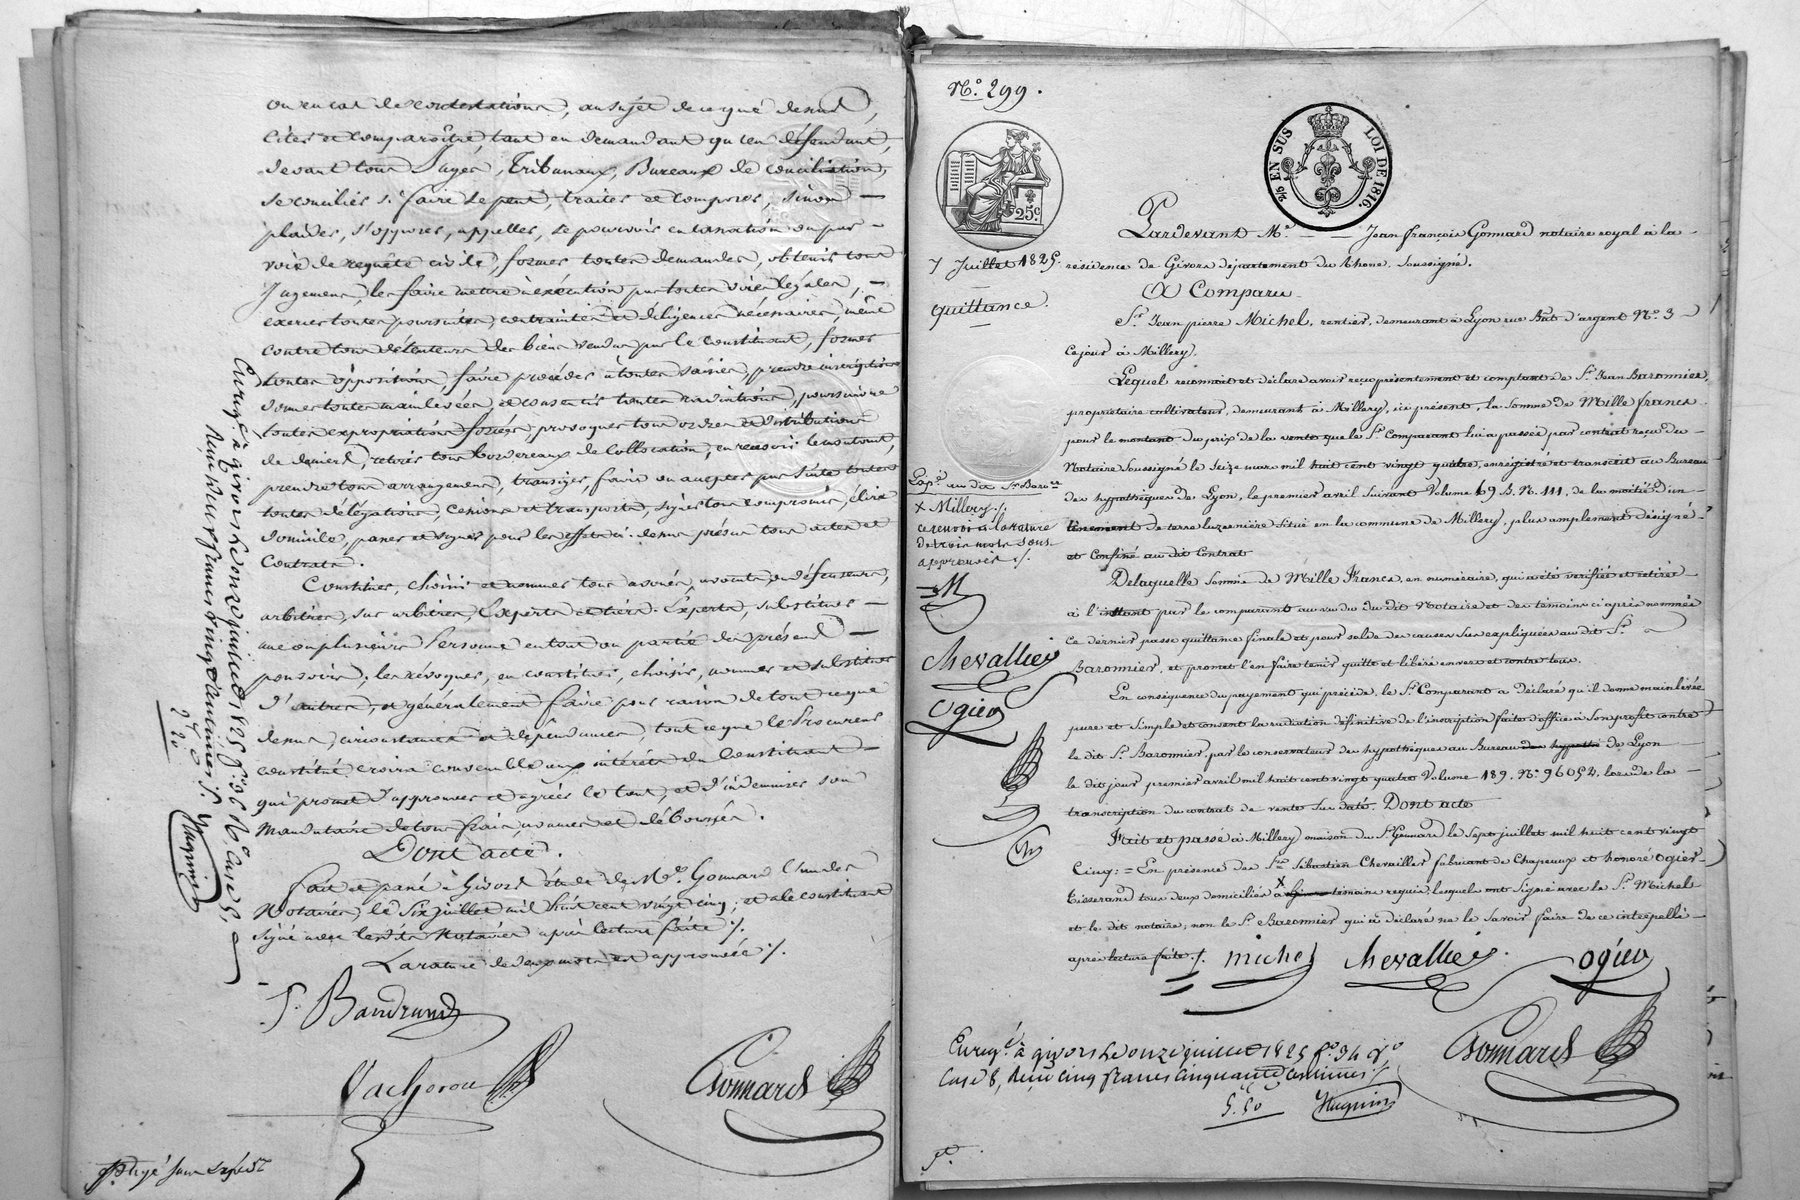 ou en cas de contestations, au sujet de ce que dessus,
citer et comparoître, tant en demandant qu'en défendant,
devant tous Juges, Tribunaux, Bureaux de conciliation,
se concilier si faire se peut, traiter et composer, sinon —
plaider, s'opposer, appeller, se pourvoir en cassation ou par —
voie de requête civile, former toutes demandes, obtenir tous
Jugemens, les faire mettre à exécution par toutes voies légales, —
exercer toutes poursuites, contraintes et diligences nécessaires, même
contre tous détenteurs des biens vendus par le Constituant, former
toutes oppositions, faire procéder à toutes saisies, prendre inscriptions
donner toutes mainlevées et consentir toutes radiations, poursuivre
toutes expropriations forcées, provoquer tous ordres et distributions
de deniers, retirer tous bordereaux de collocation, en recevoir le montant,
prendre tous arrangemens, transiger, faire ou accepter par suite toutes
toutes délégations, cessions et transports, signer tous compromis, élire
domicile, passer et signer pour les effets ci-dessus présus tous actes et
Contrats.
Constituer, choisir et nommer tous avoués, avocats ou défenseurs,
arbitres, sur arbitres, Experts et tiers-Experts, substituer —
une ou plusieurs Personnes en tout ou partie des présens —
pouvoirs, les révoquer, en constituer, choisir, nommer et substituer
d'autres, et généralement faire pour raison de tout ce que
dessus, circonstances et dépendances, tout ce que le Procureur
constitué croira convenable aux intérêts du Constituant —
qui promet d'approuver et agréer le tout, et d'indemniser son
Mandataire de tous frais, avances et déboursés.
Dont acte.
Fait et passé à Givors étude de Me. Gonnard l'un des
Notaires, le Six juillet mil huit cent vingt cinq; et a le constituant
signé avec lesdits Notaires après lecture faite ./.
La rature de deux mots est approuvée ./.
Enreg.é à givors le onze juillet 1825 f.o 36 R.o Case 5,
Reçu deux francs vingt centimes ./. Huguin
2 20
Vachorou
Gonnard
N.o 299.
25 c.
2/10 EN SUS LOI DE 1816.
7 Juillet 1825.
quittance.
Pardevant M.e — Jean françois Gonnard notaire royal à la —
résidence de Givors département du Rhone, Soussigné.
A Comparu
S.r Jean pierre Michel, rentier, demeurant à Lyon rue Bât d'argent N.o 3
Ce jour à Millery.
Lequel reconnait et déclare avoir reçu présentement et comptant de S.r Jean Baronnier,
propriétaire cultivateur, demeurant à Millery, ici présent, la somme de Mille francs
pour le montant du prix de la vente que le S.r Comparant lui a passée par contrat reçu du —
Notaire Soussigné le seize mars mil huit cent vingt quatre, enregistré et transcrit au Bureau
des hypothèques de Lyon, le premier avril suivant Volume 69 B. N. 111, de la moitié d'un —
tènement de terre luzernière situé en la commune de Millery, plus amplement désigné
et Confiné au dit Contrat
Delaquelle Somme de Mille Francs, en numéraire, qui a été vérifiée et retirée
à l'instant par le comparant au vu du dit Notaire et des témoins ci après nommés
ce dernier passe quittance finale et pour solde des causes sus expliquées au dit S.r
Baronnier, et promet l'en faire tenir quitte et libéré envers et contre tous.
En conséquence du payement qui précède, le S.r Comparant a déclaré qu'il donne mainlevée
pure et simple et consent la radiation définitive de l'inscription faite d'office à son profit contre
le dit S.r Baronnier par le conservateur des hypothèques au Bureau des hypothè de Lyon
le dit jour premier avril mil huit cent vingt quatre Volume 189. N.o 96052, lors de la —
transcription du contrat de vente sus daté. Dont acte
Fait et passé à Millery maison du S.r Gonnard le sept juillet mil huit cent vingt
Cinq: = En présence des S.rs Sébastien Chevallier fabricant de Chapeaux et honoré Ogier
tisserand tous deux domiciliés à × témoins requis; lesquels ont signé avec le S.r Michel
et le dit notaire, non le S.r Baronnier qui a déclaré ne le savoir faire de ce interpellé —
après lecture faite ./.
michel chevallier ogier
Exp.é au dit S.r Baronier
× Millery ./.
ce renvoi et la rature
de trois mots sont
approuvés ./.
M
chevallier
ogier
Enreg.é à givors le onze juillet 1825 f.o 34 V.o
Case 8, Reçu cinq francs cinquante centimes ./.
5.50 Huguin
Gonnard